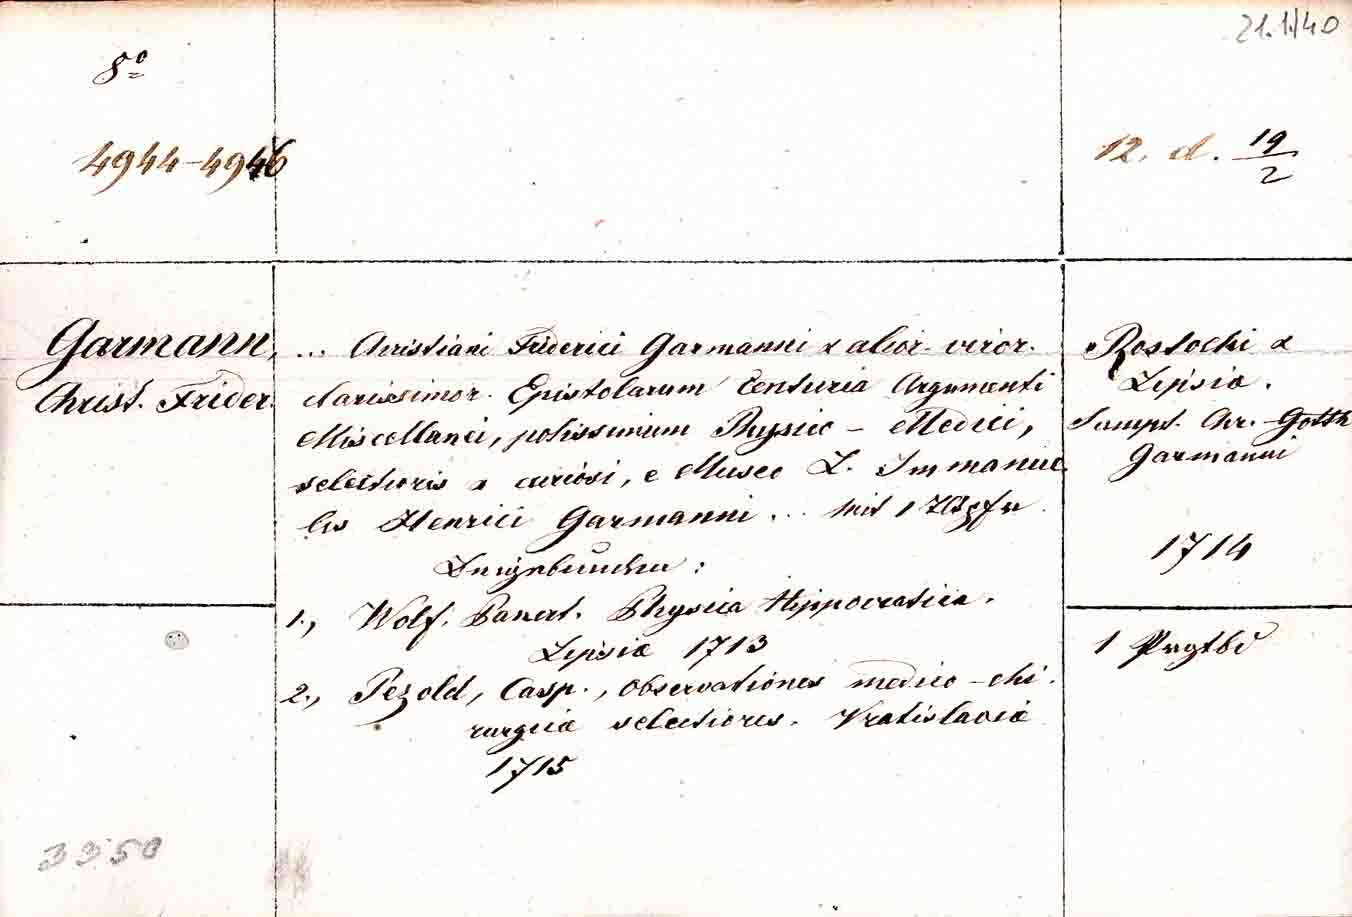 21.1.40
8º
4944-4946
12. d. 19/2
Garmann,
Christ. Frider.
... Christiani Friderici Garmanni & alior. viror.
clarissimor. Epistolarum Centuria Argumenti
Miscellanei, potissimum Physico-Medici,
selectioris & curiosi, e Museo L. Immanue
lis Henrici Garmanni... mit 1
Rostochi &
Lipsiæ.
Sumpt. Chr. Gotth
Garmanni
1714
Beigebunden:
1., Wolf. Pancrat. Physica Hippocratica.
Lipsiæ 1713
2., Pezold, Casp., Observationes medico-chi.
rurgicæ selectiores. Vratislaviæ
1715
1 Prgtbd
3350